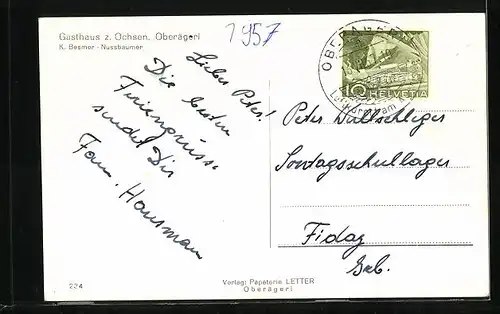 Gasthaus z. Ochsen, Oberägeri
K. Besmer - Nussbaumer
1957
Lieber Peter!
Die besten
Feriengrüsse
sendet Dir
Fam. Hausmann
OBERÄGERI
10 HELVETIA
Luftkurort am
Peter Wallschleger
Sontagsschullager
Fidaz
Grb.
Verlag: Papeterie LETTER
Oberägeri
224